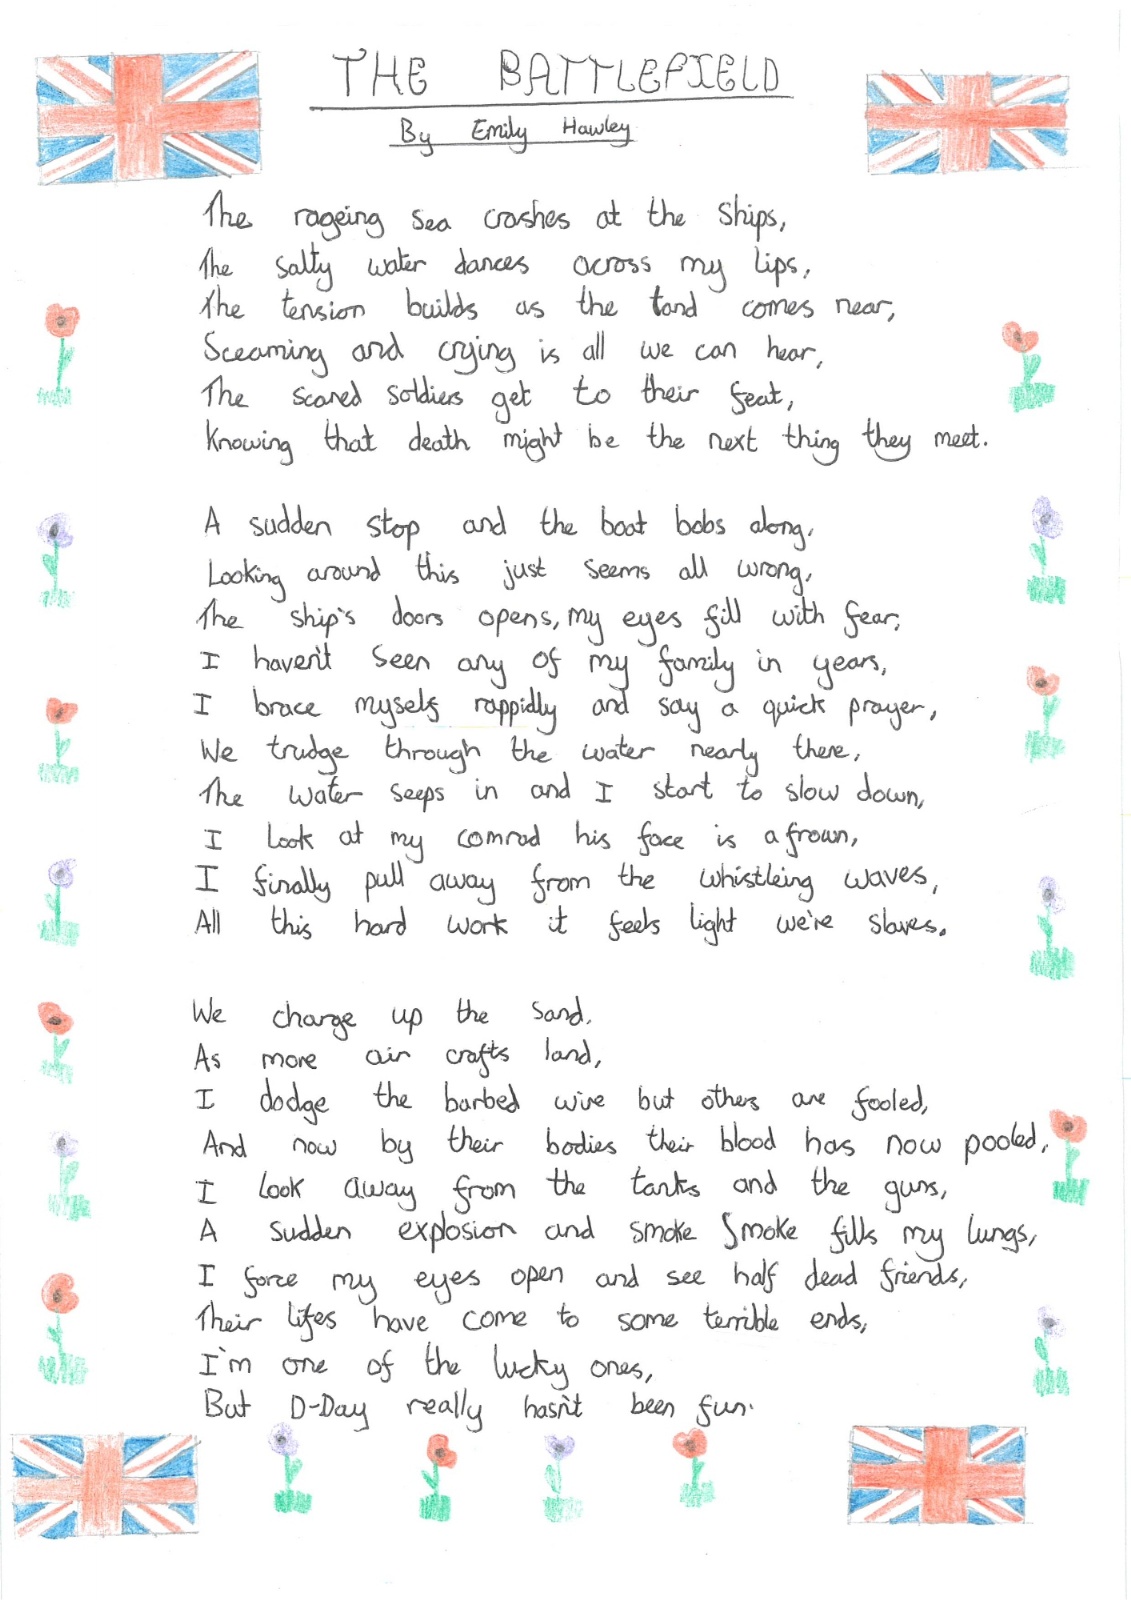 THE BATTLEFIELD
By Emily Hawley
The rageing sea crashes at the ships,
The salty water dances across my lips,
The tension builds as the tand comes near,
Sceaming and crying is all we can hear,
The scared soldiers get to their feat,
Knowing that death might be the next thing they meet.
A sudden stop and the boat bobs along,
Looking around this just seems all wrong,
The ship's doors opens, my eyes fill with fear,
I haven't seen any of my family in years,
I brace myself rappidly and say a quick prayer,
We trudge through the water nearly there,
The water seeps in and I start to slow down,
I look at my comrad his face is a frown,
I finally pull away from the whistleing waves,
All this hard work it feels light we're slaves.
We charge up the sand,
As more air crafts land,
I dodge the barbed wire but others are fooled,
And now by their bodies their blood has now pooled,
I look away from the tanks and the guns,
A sudden explosion and smoke smoke fills my lungs,
I force my eyes open and see half dead friends,
Their lifes have come to some terrible ends,
I'm one of the lucky ones,
But D-Day really hasn't been fun.